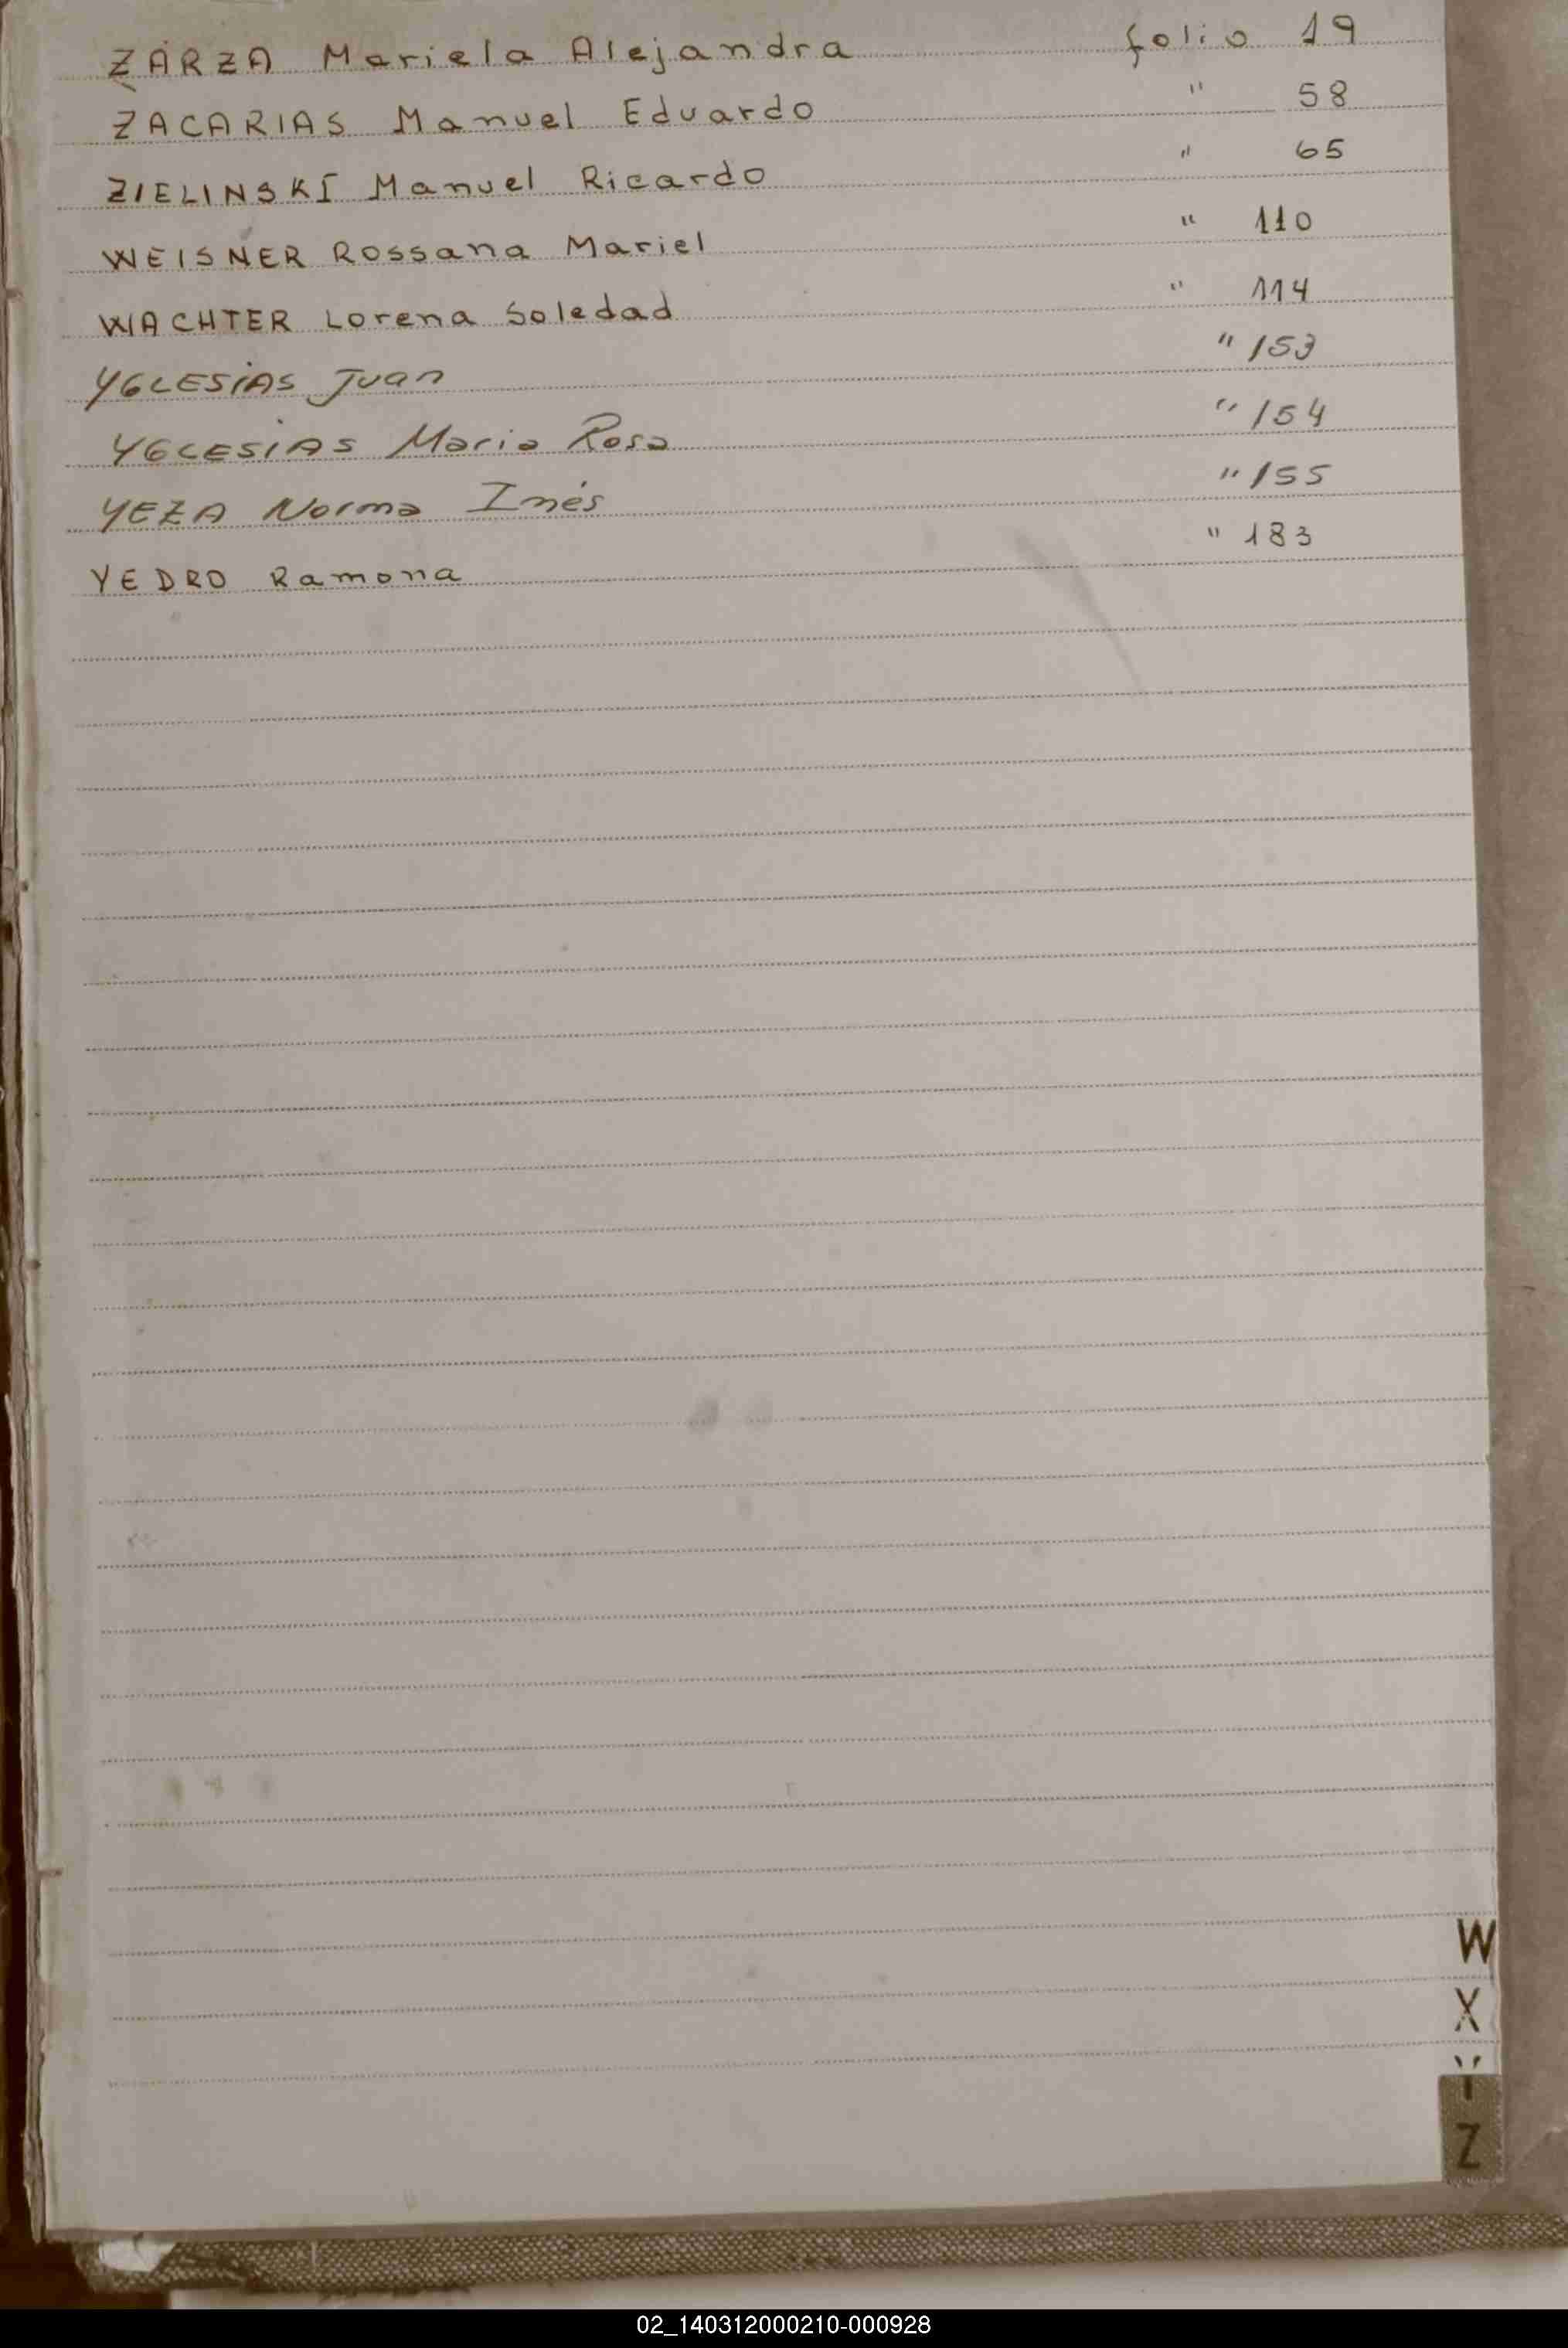 ZARZA Mariela Alejandra folio 19
ZACARIAS Manuel Eduardo " 58
ZIELINSKI Manuel Ricardo " 65
WEISNER Rossana Mariel " 110
WACHTER Lorena Soledad " 114
YGLESIAS Juan " 153
YGLESIAS Maria Rosa " 154
YEZA Norma Inés " 155
YEDRO Ramona " 183
W
X
Y
Z
02_140312000210-000928